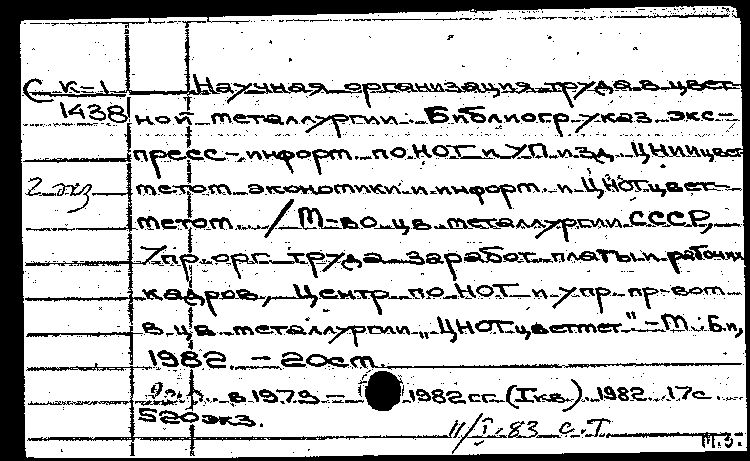 С к-1 Научная организация труда в цвет-
1438 ной металлургии. Библиогр. указ. экс-
пресс-информ. по НОТ и УП изд. ЦНИИцвет-
2 экз метэм экономики и информ. и ЦНОТцвет-
метом. / М-во цв. металлургии СССР,
Упр. орг. труда заработ. платы и рабочих
кадров, Центр по НОТ и упр. пр-вом
в цв. металлургии „ЦНОТцветмет" - М.: Б.и,
1982. - 20 см.
в 1973 - 1982 гг (I кв). 1982. 17 с.
520 экз.
11/I-83 С.Т.
М.З.